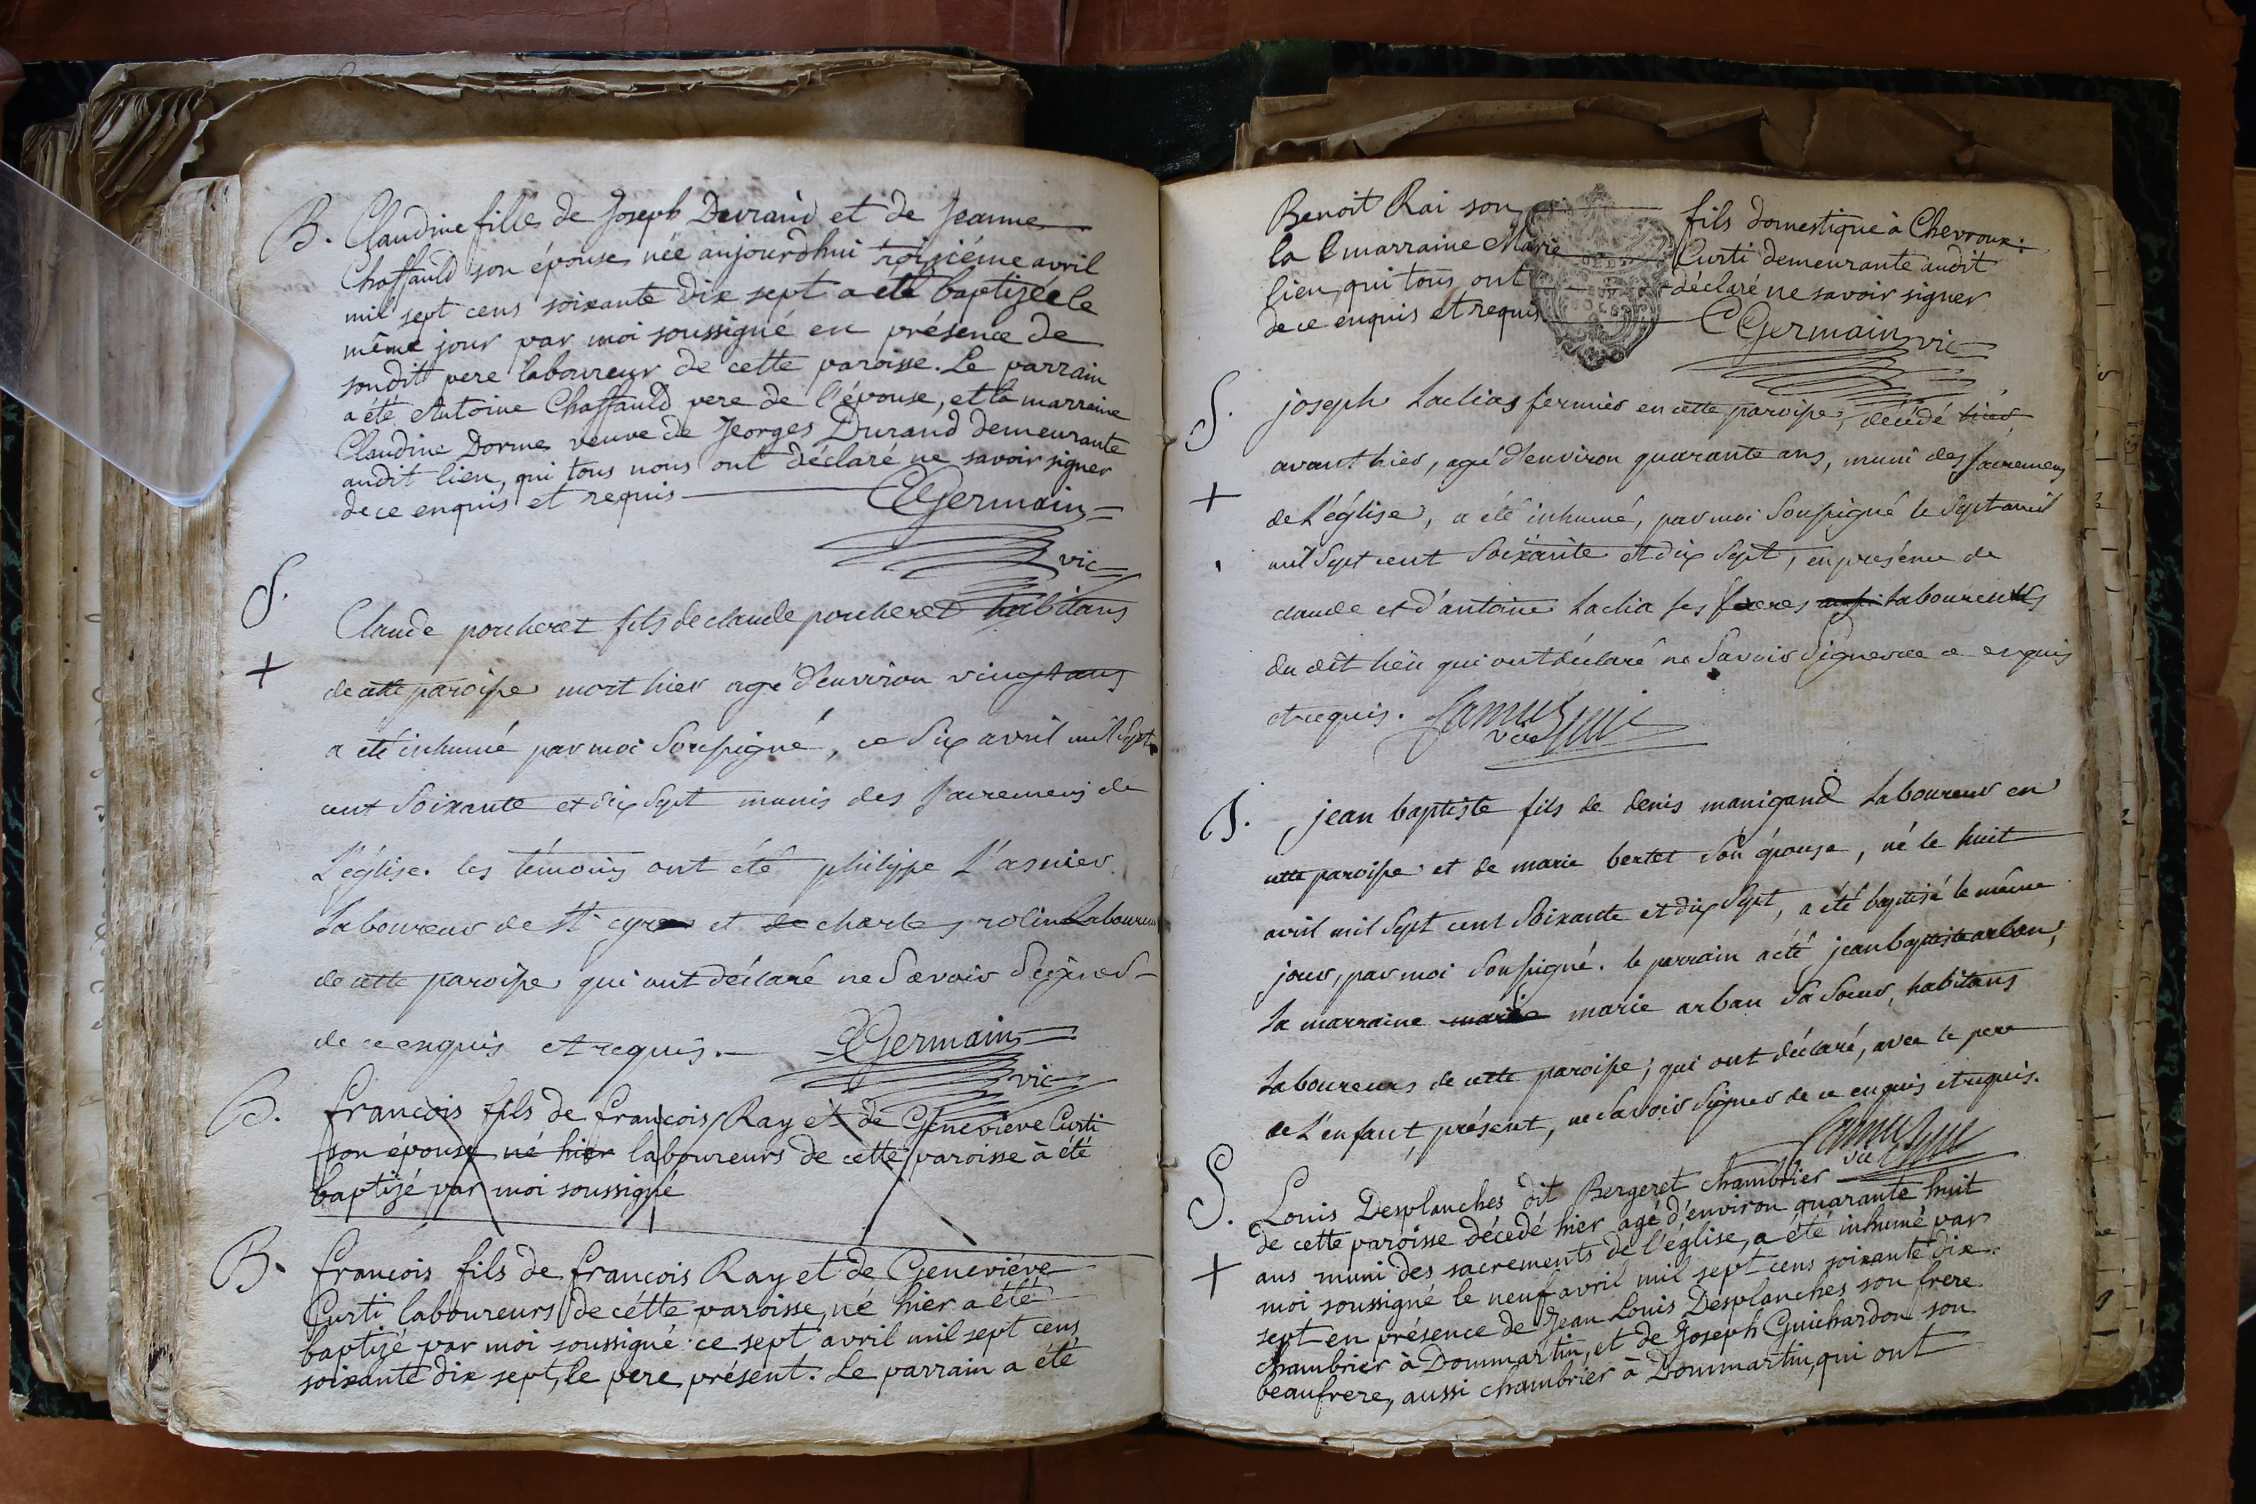 B. Claudine fille de Joseph Durand et de Jeanne
Chaffauld son épouse née aujourdhui troisiéme avril
mil sept cens soixante dix sept a été baptizée le
même jour par moi soussigné en présence de
sondit pere laboureur de cette paroisse. Le parrain
a été Antoine Chaffauld pere de l'épouse, et la marraine
Claudine Dorme veuve de Georges Durand demeurante
audit lieu, qui tous nous ont déclaré ne savoir signer
de ce enquis et requis
Germain
vic
S.
Claude porcheret fils de claude porcheret habitans
+ de cette paroisse mort hier agé d'environ vingt ans
a été inhumé par moi soussigné, ce six avril mil sept
cent soixante et dix sept munis des sacremens de
l'église. les témoins ont été philippe l'asnier
laboureur de st cyr et de charles rolin laboureur
de cette paroisse qui ont déclaré ne savoir signer
de ce enquis et requis.
Germain
vic
B. francois fils de francois Ray et de Genevieve Curti
son épouse né hier laboureurs de cette paroisse à été
baptizé par moi soussigné
B. francois fils de francois Ray et de Geneviéve
Curti laboureurs de cétte paroisse, né hier a été
baptizé par moi soussigné ce sept avril mil sept cens
soixante dix sept, le pere présent. Le parrain a été
Benoit Rai son fils domestique à Chevroux:
la marraine Marie Curti demeurante audit
lieu, qui tous ont déclaré ne savoir signer
de ce enquis et requis
Germain vic
S. joseph Laclias fermier en cette paroisse, décédé hier
avant hier, agé d'environ quarante ans, muni des sacremens
+ de l'église, a été inhumé, par moi soussigné le sept avril
mil sept cent soixante et dix sept, en présence de
claude et d'antoine Laclia ses freres laboureurs
du dit lieu qui ont déclaré ne savoir signer de ce enquis
et requis.
vic
B. jean baptiste fils de denis manigand laboureur en
cette paroisse et de marie bertet son épouse, né le huit
avril mil sept cent soixante et dix sept, a été baptisé le même
jour, par moi soussigné. le parrain a été jean baptiste arban,
la marraine marie marie arban sa soeur, habitans
laboureurs de cette paroisse, qui ont déclaré, avec le pere
de l'enfant, présent, ne savoir signer de ce enquis et requis.
vic
S. Louis Desplanches dit Bergeret chambrier
de cette paroisse décedé hier agé d'environ quarante huit
+ ans muni des sacrements de l'église, a été inhumé par
moi soussigné le neuf avril mil sept cens soixante dix
sept en présence de Jean Louis Desplanches son frere
chambrier à Dommartin, et de Joseph Guichardon son
beaufrere, aussi chambrier à Dommartin, qui ont